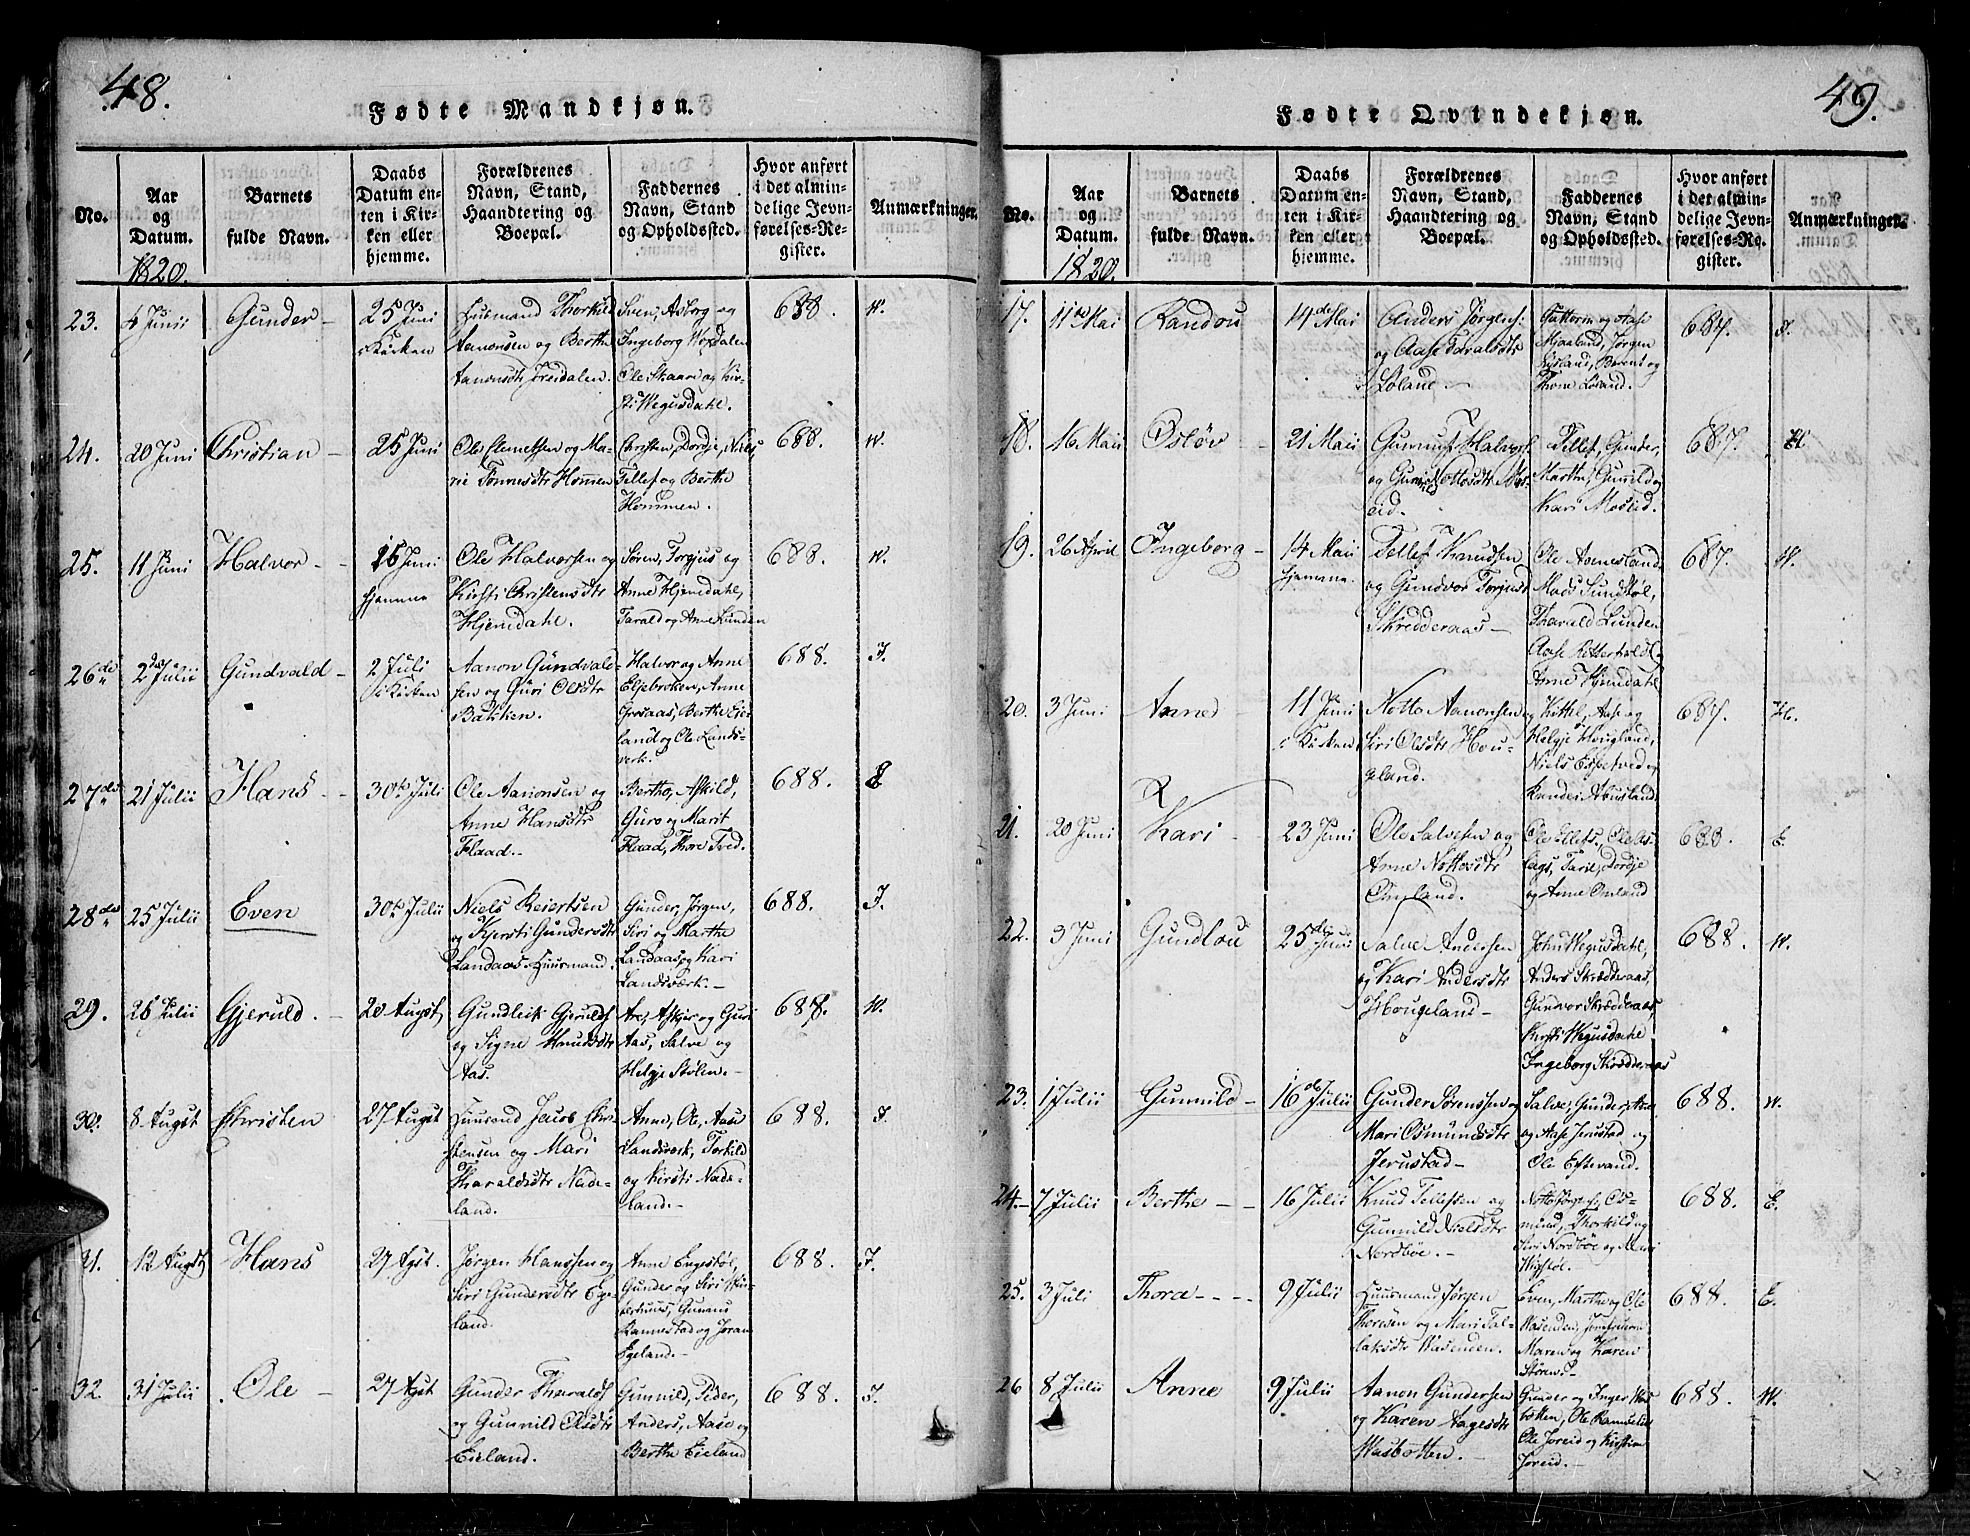 48.
Fødte Mandkjøn.
No.
Aar
og
Datum.
Barnets
fulde Navn.
Daabs
Datum en-
ten i Kir-
ken eller
hjemme.
Forældrenes
Navn, Stand,
Haandtering og
Boepæl.
Faddernes
Navn, Stand
og Opholdssted.
Hvor anført
i det almin-
delige Jevn-
førelses-Re-
gister.
Anmærkninger.
1820.
23.
4 Junii
Gunder
25 Juni
i Kirken
Huusmand Thorkild
Aanonsen og Berthe
Aanonsdtr
Sven, Asborg og
Ingeborg
Ole Skaari og Kir-
sti Wegusdahl.
688.
W.
24.
20 Juni
Christian
25 Juni
Ole Clemetsen og Ma-
rie Tønnesdtr Hommen
Christen, Dordje, Niels,
Tellef og Berthe
Hommen.
688.
W.
25.
11 Juni
Halvor
25 Juni
hjemme
Ole Halvorsen og
Kirsti Christensdtr
Hjemdahl.
Søren, Torgjus og
Anne Hjemdahl,
Tarald og Anne Lunden
688.
W.
26de
2 Julii
Gundvald
2 Juli
i Kirken
Aanon Gundvald-
sen og Guri Olsdtr
Bakken.
Halvor og Anne
Eljebrokken, Anne
Berthe Eie-
land og Ole Lands-
verk.
688.
I.
27de
21 Julii
Hans
30te Juli
Ole Aanonsen og
Anne Hansdtr
Flaad.
Berthe, Askild,
Guro og Marit
Flaad, Thore Tved.
688.
E
28de
25 Julii
Even
30te Julii
Niels Reiertsen
og Kjersti Gundersdtr
Landaas Huusmand.
Gunder, Jørgen,
Siri og Marthe
Landaas og Kari
Landsværk.
688.
I.
29.
26 Julii
Gjeruld
20 Augst
Gundleik Gjerulds
og Signe Knudsdtr
Aas.
Are, Asker og Guri
Aas, Salve og
Helgje Stølen.
688.
W.
30.
8 Augst
Christen
27 Augst
Huusmand Jacob Chri-
stensen og Mari
Tharaldsdtr Nade-
land.
Anne, Ole, Aase
Landsverk, Torkild
og Kirsti Nade-
land.
688.
I.
31.
12 Augst
Hans
27 Agst.
Jørgen Hanssen og
Siri Gundersdtr Ege-
land.
Anne Engestøl,
Gunder og Siri
Gunnus
Rannestad og Joran
Egeland.
688.
I.
32.
31 Julii
Ole
27 Agst
Gunder Tharalds
og Gunnild Olsdtr
Eieland.
Gunnild, Peder,
Anders, Aase og
Berthe Eieland
688.
I.
49.
Fødte Qvindekjøn.
No.
Aar
og
Datum.
Barnets
fulde Navn.
Daabs
Datum en-
ten i Kir-
ken eller
hjemme.
Forældrenes
Navn, Stand,
Haandtering og
Boepæl.
Faddernes
Navn, Stand
og Opholdssted.
Hvor anført
i det almin-
delige Jevn-
førelses-Re-
gister.
Anmærkninger.
1820.
17.
11te Mai
Randou
14de Mai
Anders Jørgens:
og Aase Taraldsdtr
Løland.
og Aase
Mjaaland, Jørgen
Lisland, Berent og
Thore Løland.
687.
I.
18.
16 Maii
Osløv
21 Maii
Gunnuf Halvors.
og Gunild Nottosdtr Mos-
eid.
Tellef, Gunder,
Marthe, Gunild og
Kari Moseid.
687.
H
19.
26 April
Ingeborg
14 Maii
hjemme.
Tellef Knudsen
og Gundvor Torgiusd
Skreddernaas
Ole Avnesland
Mads Sundtøl,
Tharald Lunden
Aase Retterholdt
Anne Hjemdahl
687.
W.
20.
3 Juni
Anne
11 Juni
i Kirken
Notto Aanonsen og
Siri Olsdtr Hou-
geland.
Kittel, Aase og
Helgje Hougland,
Niels Espetved og
687.
H.
21.
20 Juni
Kari
23 Juni
Ole Salvesen og
Anne Nottosdtr
Omland.
Ole Ellefs., Ole As-
lags, Taril, Dordje
og Anne Omland
688.
E.
22.
3 Juni
Gundlou
25de Juni
Salve Andersen
og Kari Andersdtr
Hougeland
John Wegusdahl,
Anders Skræddernaas,
Gundvor Skræddernaas,
Kirsti Wegusdahl
Ingeborg Skreddernaas
688.
W.
23.
1 Julii
Gunnild
16de Julii
Gunder Sørenssen og
Mari Osmundsdtr
Jerustad
Salve, Gunder, Are
og Aase Jerustad og
Ole Eftevand.
688.
W.
24.
7 Julii
Berthe
16 Julii
Knud Tellefsen og
Gunnild Nieldsdtr
Nordbøe.
Notto Jørgens, Os-
mund, Thorkild og
Siri Nordbøe og Mari
688.
E.
25.
3 Juli
Thore
9 Julii
Huusmand Jørgen
Thoresen og Mari Tal-
laksdtr Wasenden.
Even, Marthe og Ole
Wasenden,
Maren og Karen
Størens
688.
E.
26
8 Julii
Anne
9 Julii
Aanon Gundersen
og Karen Aagesdtr
Wasbotten.
Gunder og Inger Was-
botten, Ole
Ole Joreid og Kirsten
Joreid.
688.
W.